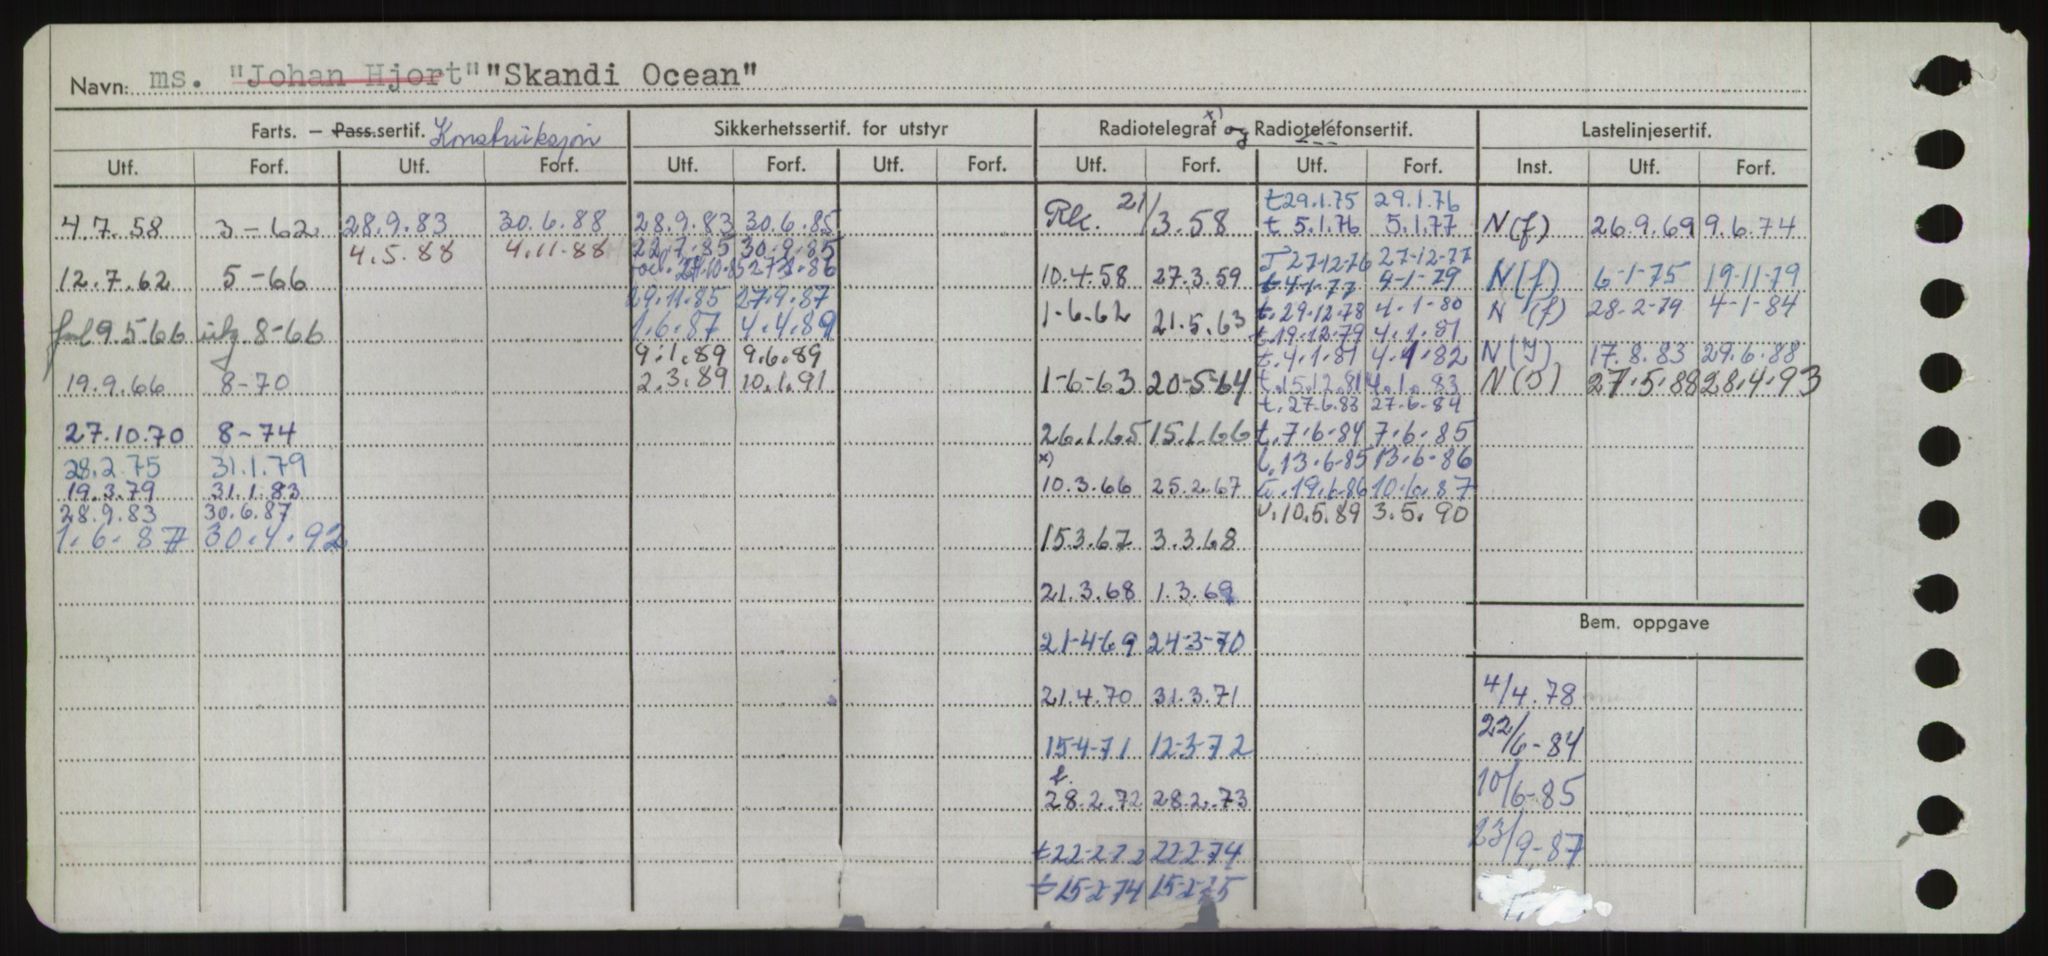 Navn: ms. "Johan Hjort" "Skandi Ocean"
Farts. – Pass.sertif. Konstruksjon Sikkerhetssertif. for utstyr Radiotelegraf x) og Radiotelefonsertif. Lastelinjesertif.
Utf. Forf. Utf. Forf. Utf. Forf. Utf. Forf. Utf. Forf. Utf. Forf. Inst. Utf. Forf.
t 29.1.75 29.1.76
4.7.58 3-62 28.9.83 30.6.88 28.9.83 30.6.85 Rk. 21/3.58 t 5.1.76 5.1.77 N(f) 26.9.69 9.6.74
4.5.88 4.11.88 22.7.85 30.9.85 T 27-12-76 27-12-77
12.7.62 5-66 10.4.58 27.3.59 t 4-1-77 4-1-79 N(f) 6-1-75 19-11-79
29.11.85 27.9.87 1-6.62 21.5.63 t. 29.12.78 4-1-80 N (f) 28-2-79 4-1-84
9.5.66 8-66 1.6.87 4.4.89 t. 19.12.79 4.1.81
9.1.89 9.6.89 t. 4.1.81 4.1.82 N 17.8.83 29.6.88
19.9.66 8-70 2.3.89 10.1.91 1-6-63 20-5-64 t. 15.12.81 4.1.83 N 27.5.88 28.4.93
t. 27.6.83 27.6.84
27.10.70 8-74 26.1.65 15.1.66 t. 7.6-84 7.6-85
28.2.75 31.1.79 x) 13.6-85 13.6-86
19.3.79 31.1.83 10.3.66 25.2.67 19.6.86 10.6.87
28.9.83 30.6.87 v. 10.5.89 3.5.90
1.6.87 30.4.92 15.3.67 3.3.68
21.3.68 1.3.69
Bem. oppgave
21-4-69 24-3-70
21.4.70 31.3.71 4/4.78
15-4-71 12-3-72 22/6-84
t.
28.2.72 28.2.73 10/6-85
t 22-2-72 22-2-74 23/9-87
t 15-2-74 15-2-75